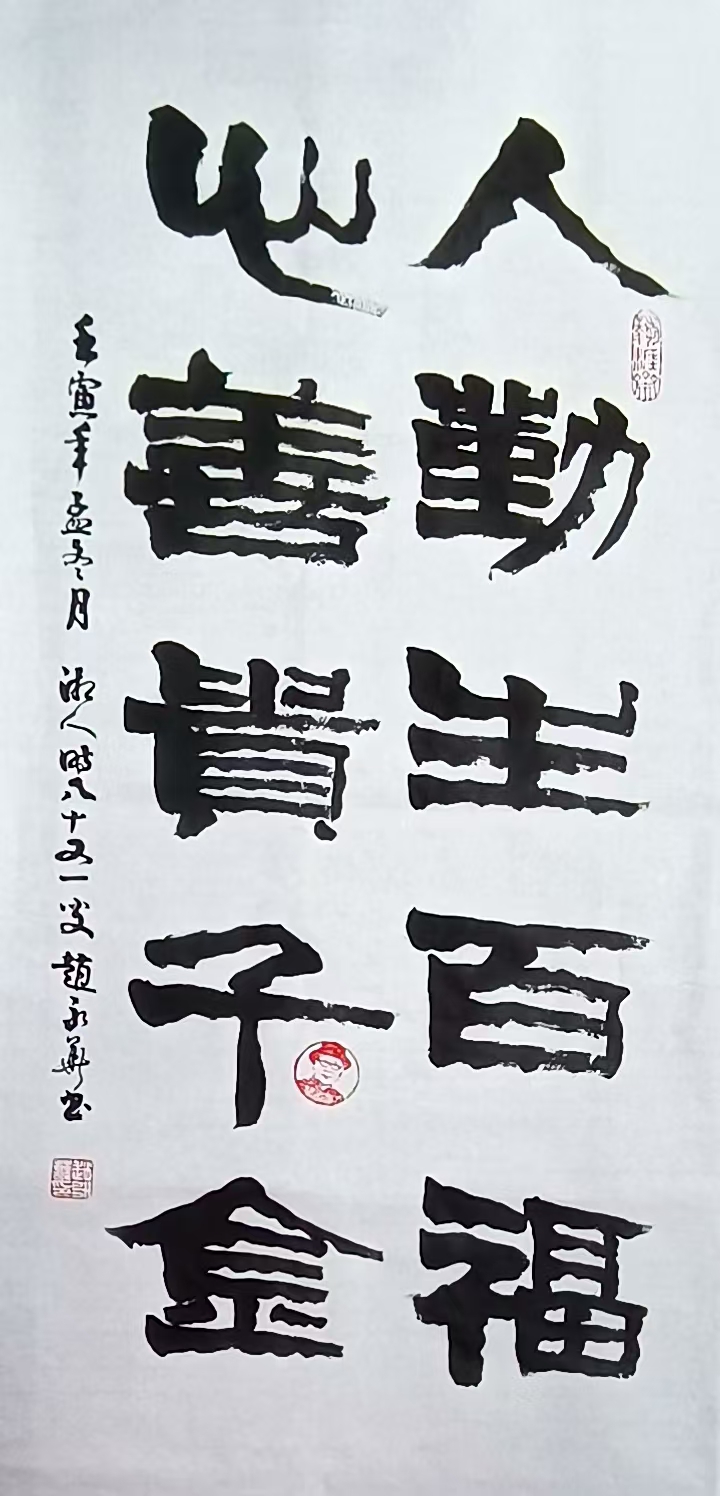 人勤生百福
心善貴千金
壬寅年孟冬月 湘人時八十又一叟趙永華書